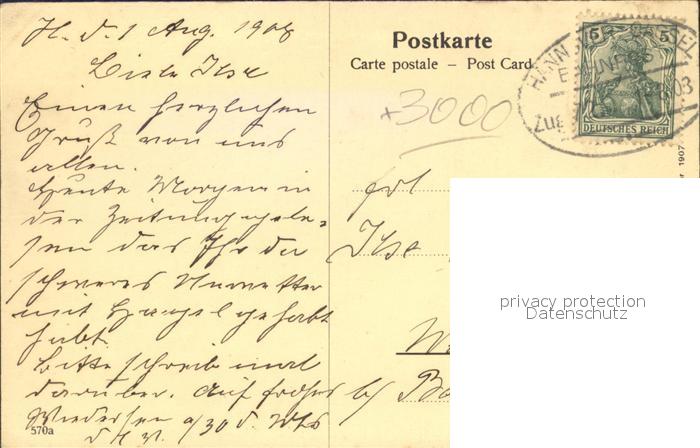 H. d. 1 Aug. 1908
Liebe Ilse
Einen herzlichen
Gruß von uns
allen.
Heute Morgen in
der Zeitung gele=
sen das Ihr da
schweres Unwetter
mit Hagel gehabt
habt.
Bitte schreib mal
darüber. Auf frohes
Wiedersen a/30 d. Mts
570a
Postkarte
Carte postale – Post Card
+3000
Frl
Ilse
b/
5 5
DEUTSCHES REICH
HANN CASSEL
Zug
1907
privacy protection
Datenschutz